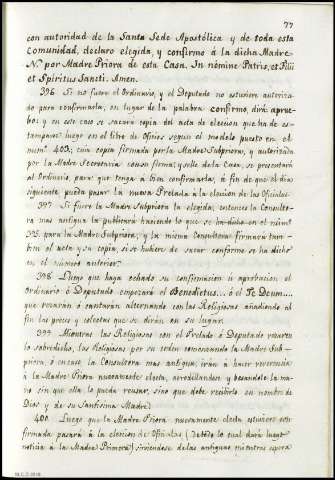 77
con autoridad de la Santa Sede Apostólica y de toda esta
Comunidad, declaro elegida, y confirmo á la dicha Madre
N. por Madre Priora de esta Casa. In nómine Patris, et Filii
et Spiritus Sancti. Amen.
396. Si no fuere el Ordinario, y el Deputado no estuviere autoriza-
do para confirmarla, en lugar de la palabra confirmo, dirá aprue-
bo: y en este caso se sacará copia del acta de eleccion que ha de es-
tamparse luego en el libro de Oficios segun el modelo puesto en el
num.º 403; cuia copia firmada por la Madre Subpriora, y autorizada
por la Madre Secretaria con su firma y sello de la Casa, se presentará
al Ordinario, para que tenga á bien confirmarla, á fin de que el dia
siguiente pueda pasar la nueva Prelada á la eleccion de las Oficialas.
397. Si fuere la Madre Subpriora la elegida, entonces la Consulto-
ra mas antigua la publicará haciendo lo que se ha dicho en el núm.º
395. para la Madre Subpriora; y la misma Consultora firmará tam-
bien el acta y su copia, si se hubiere de sacar conforme se ha dicho
en el número anterior.
398. Luego que haya echado su confirmacion ú aprobacion el
Ordinario ó Deputado empezará el Benedictus... ó el Te Deum...
que rezarán ó cantarán alternando con las Religiosas añadiendo al
fin las preces y colectas que se dirán en su lugar.
399. Mientras las Religiosas con el Prelado ó Deputado rezaren
lo sobredicho, las Religiosas por su orden comenzando la Madre Sub-
priora, ó en caso la Consultora mas antigua, irán á hacer reverencia
á la Madre Priora nuevamente electa, arrodillandose y besandole la ma-
no sin que ella lo pueda reusar, sino que debe recibirlo en nombre de
Dios y de su Santísima Madre.
400. Luego que la Madre Priora nuevamente electa estuviere con-
firmada pasará á la eleccion de Oficialas (debido lo cual dará luego
noticia á la Madre Primera) sirviendose de las antiguas mientras espera